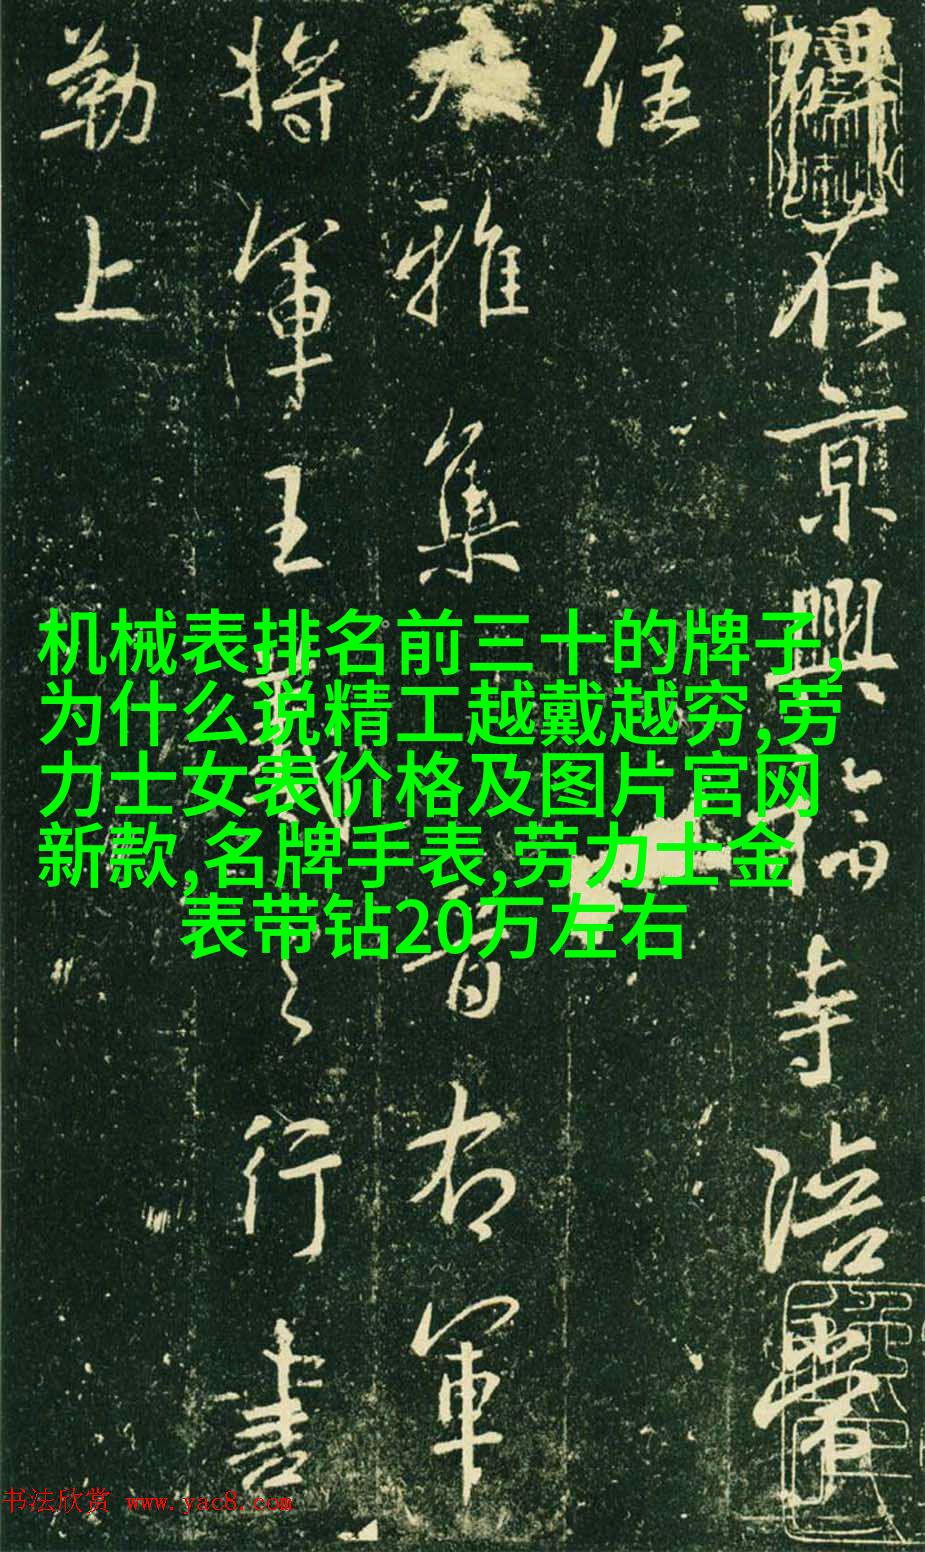 碑在京興福寺陪常
住
大雅集晉右軍
將軍王羲之行書
勒上
机械表排名前三十的牌子,
为什么说精工越戴越穷,劳
力士女表价格及图片官网
新款,名牌手表,劳力士金
表带钻20万左右
书法欣赏 www.yac8.com